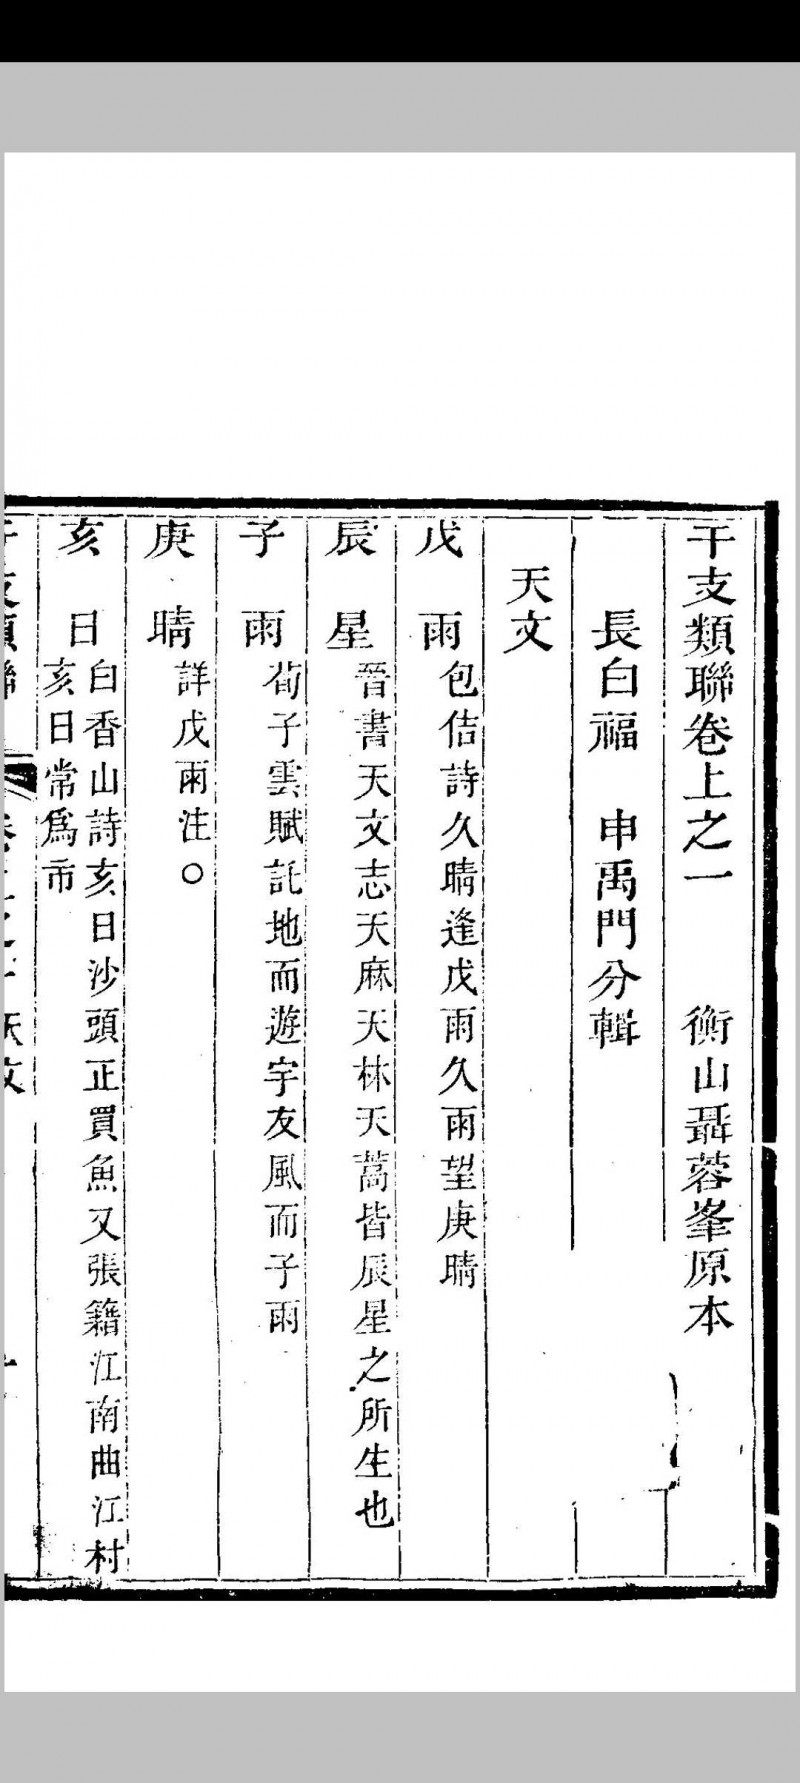 干支類聯卷上之一　衡山聶蓉峯原本
長白福　申禹門分輯
天文
戊雨　包佶詩久晴逢戊雨久雨望庚晴
辰星　晉書天文志天麻天林天蒿皆辰星之所生也
子雨　荀子雲賦託地而遊宇友風而子雨
庚晴　詳戊雨注〇
亥日　白香山詩亥日沙頭正買魚又張籍江南曲江村
亥日常爲市